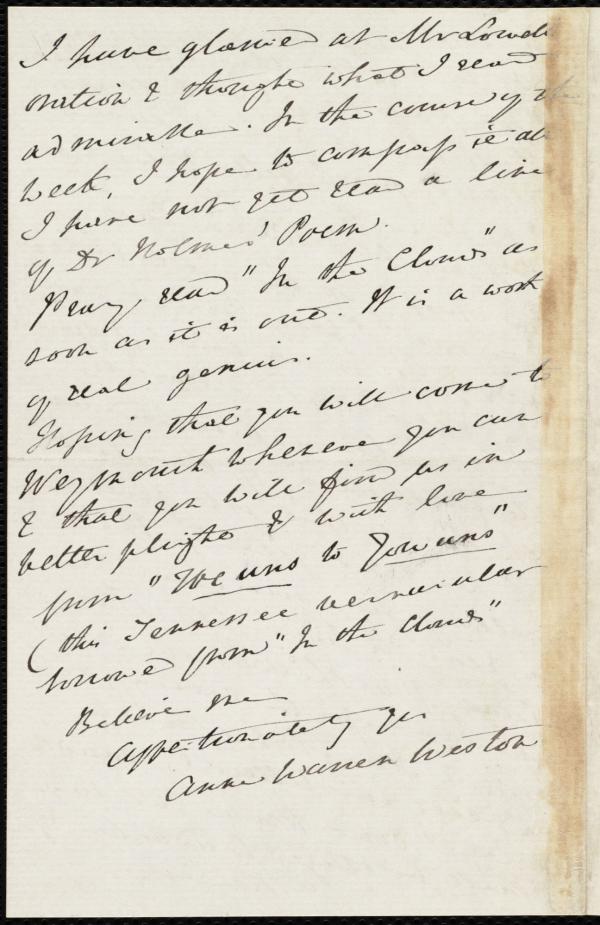 I have glanced at Mr Lowell
oration & thought what I read
admirable. In the course of the
week, I hope to compass it all
I have not yet read a line
of Dr Holmes' Poem.
Pray read "In the Clouds" as
soon as it is out. It is a work
of real genius.
Hoping that you will come to
Weymouth whenever you can
& that you will find us in
better plight & with love
from "We uns to You uns"
(this Tennessee vernacular
borrowed from "In the Clouds"
Believe me
Affectionately yrs
Anne Warren Weston